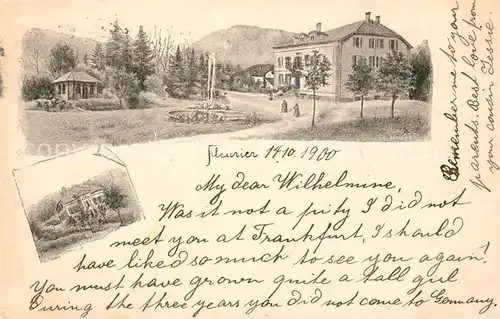 Fleurier 14 10. 1900
My dear Wilhelmine,
Was it not a pity I did not
meet you at Frankfurt, I should
have liked so much to see you again!
You must have grown quite a tall girl
During the three years you did not come to Germany.
Remember me to your
parents. Best love from
your cousin Jessie.